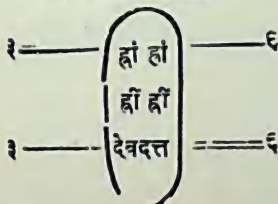 ३ ह्रां ह्रां ६
ह्रीं ह्रीं
३ देवदत्त ६